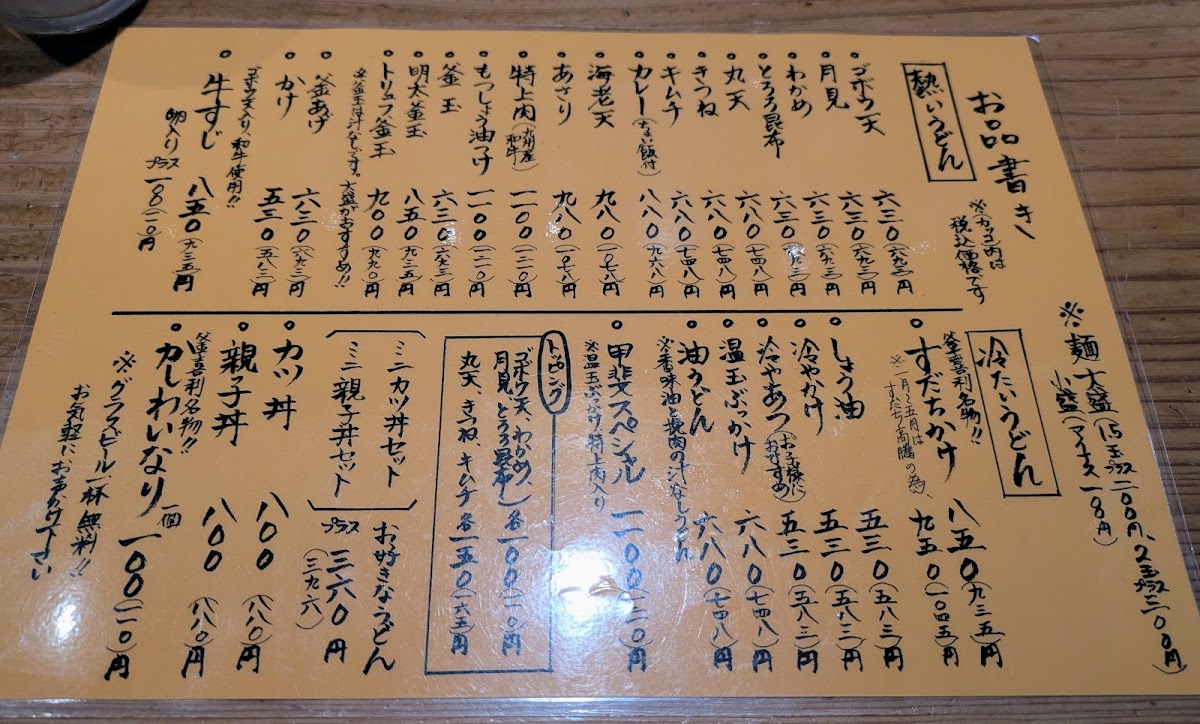 お品書き
※(カッコ)内は
税込価格です
熱いうどん
ゴボウ天 六三〇(六九三)円
月見 六三〇(六九三)円
わかめ 六三〇(六九三)円
とろろ昆布 六三〇(六九三)円
丸天 六八〇(七四八)円
きつね 六八〇(七四八)円
キムチ 六八〇(七四八)円
カレー(ちょい飯付) 八八〇(九六八)円
海老天 九八〇(一〇七八)円
あさり 九八〇(一〇七八)円
特上肉(和牛) 一一〇〇(一二一〇)円
もつしょう油つけ 一一〇〇(一二一〇)円
釜玉 六三〇(六九三)円
明太釜玉 八五〇(九三五)円
トリュフ釜玉 九〇〇(九九〇)円
※釜玉は汁なしです。大盛がおすすめ!!
釜あげ 六三〇(六九三)円
かけ 五三〇(五八三)円
ゴボウ天入り、和牛使用!!
牛すじ 八五〇(九三五)円
卵入り プラス一〇八(一一〇)円
※麺 大盛(1.5玉プラス二〇〇円、2玉プラス三〇〇円)
小盛(マイナス一〇八円)
冷たいうどん
釜喜利名物!!
すだちかけ 八五〇(九三五)円
※一月〜五月は
すだち高騰の為、 九五〇(一〇四五)円
しょう油 五三〇(五八三)円
冷やかけ 五三〇(五八三)円
冷やあつ(お子様におすすめ) 五三〇(五八三)円
温玉ぶっかけ 六八〇(七四八)円
油うどん 六八〇(七四八)円
※香味油と挽肉の汁なしうどん
甲斐スペシャル 一一〇〇(一二一〇)円
※温玉ぶっかけ、特上肉入り
トッピング
ゴボウ天、わかめ、
月見、とろろ昆布、 各一〇〇(一一〇)円
丸天、きつね、キムチ 各一五〇(一六五)円
ミニカツ丼セット
ミニ親子丼セット
お好きなうどん
プラス三六〇円
(三九六)
カツ丼 八〇〇(八八〇)円
親子丼 八〇〇(八八〇)円
釜喜利名物!!
かしわいなり 一個 一〇〇(一一〇)円
※グラスビール一杯無料!!
お気軽に、お声がけ下さい